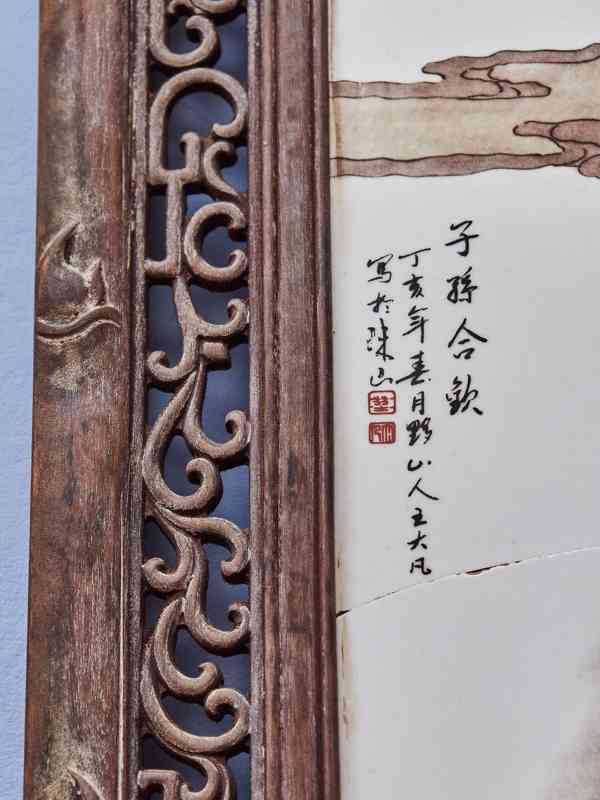 子孫合歡
丁亥年春月黟山人王大凡
寫於珠山